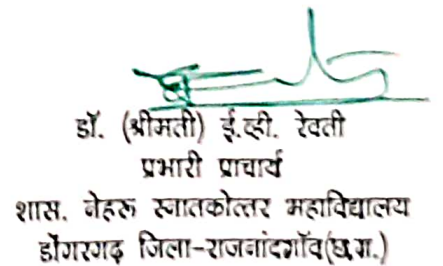 डॉ. (श्रीमती) ई.व्ही. रेवती
प्रभारी प्राचार्य
शास. नेहरू स्नातकोत्तर महाविद्यालय
डोंगरगढ़ जिला-राजनांदगाँव(छ.ग.)